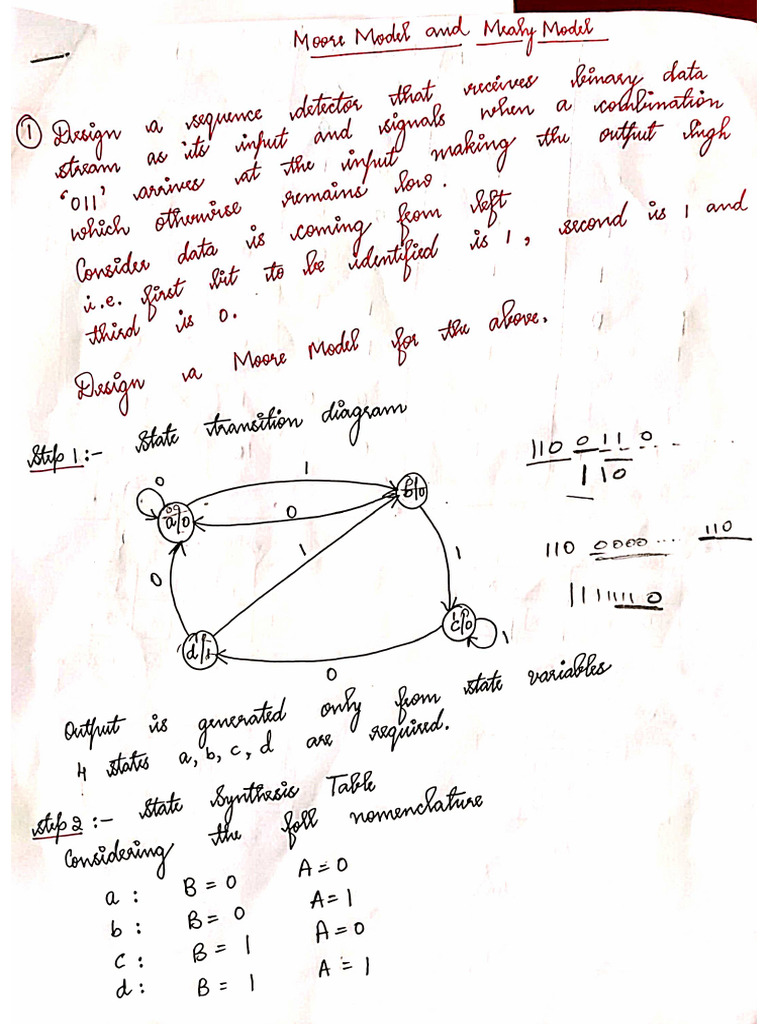 Moore Model and Mealy Model
① Design a sequence detector that receives binary data
stream as its input and signals when a combination
'011' arrives at the input making the output high
which otherwise remains low.
Consider data is coming from left
i.e. first bit to be identified is 1, second is 1 and
third is 0.
Design a Moore Model for the above.
Step 1:- State transition diagram
110 0 11 0 - - . .
110
0
1
a/0
b/0
0
1
1
110 0000... 110
0
1111110
c/0
1
d/1
0
Output is generated only from state variables
4 states a, b, c, d are required.
Step 2:- State Synthesis Table
Considering the foll nomenclature
a: B = 0 A = 0
b: B = 0 A = 1
c: B = 1 A = 0
d: B = 1 A = 1